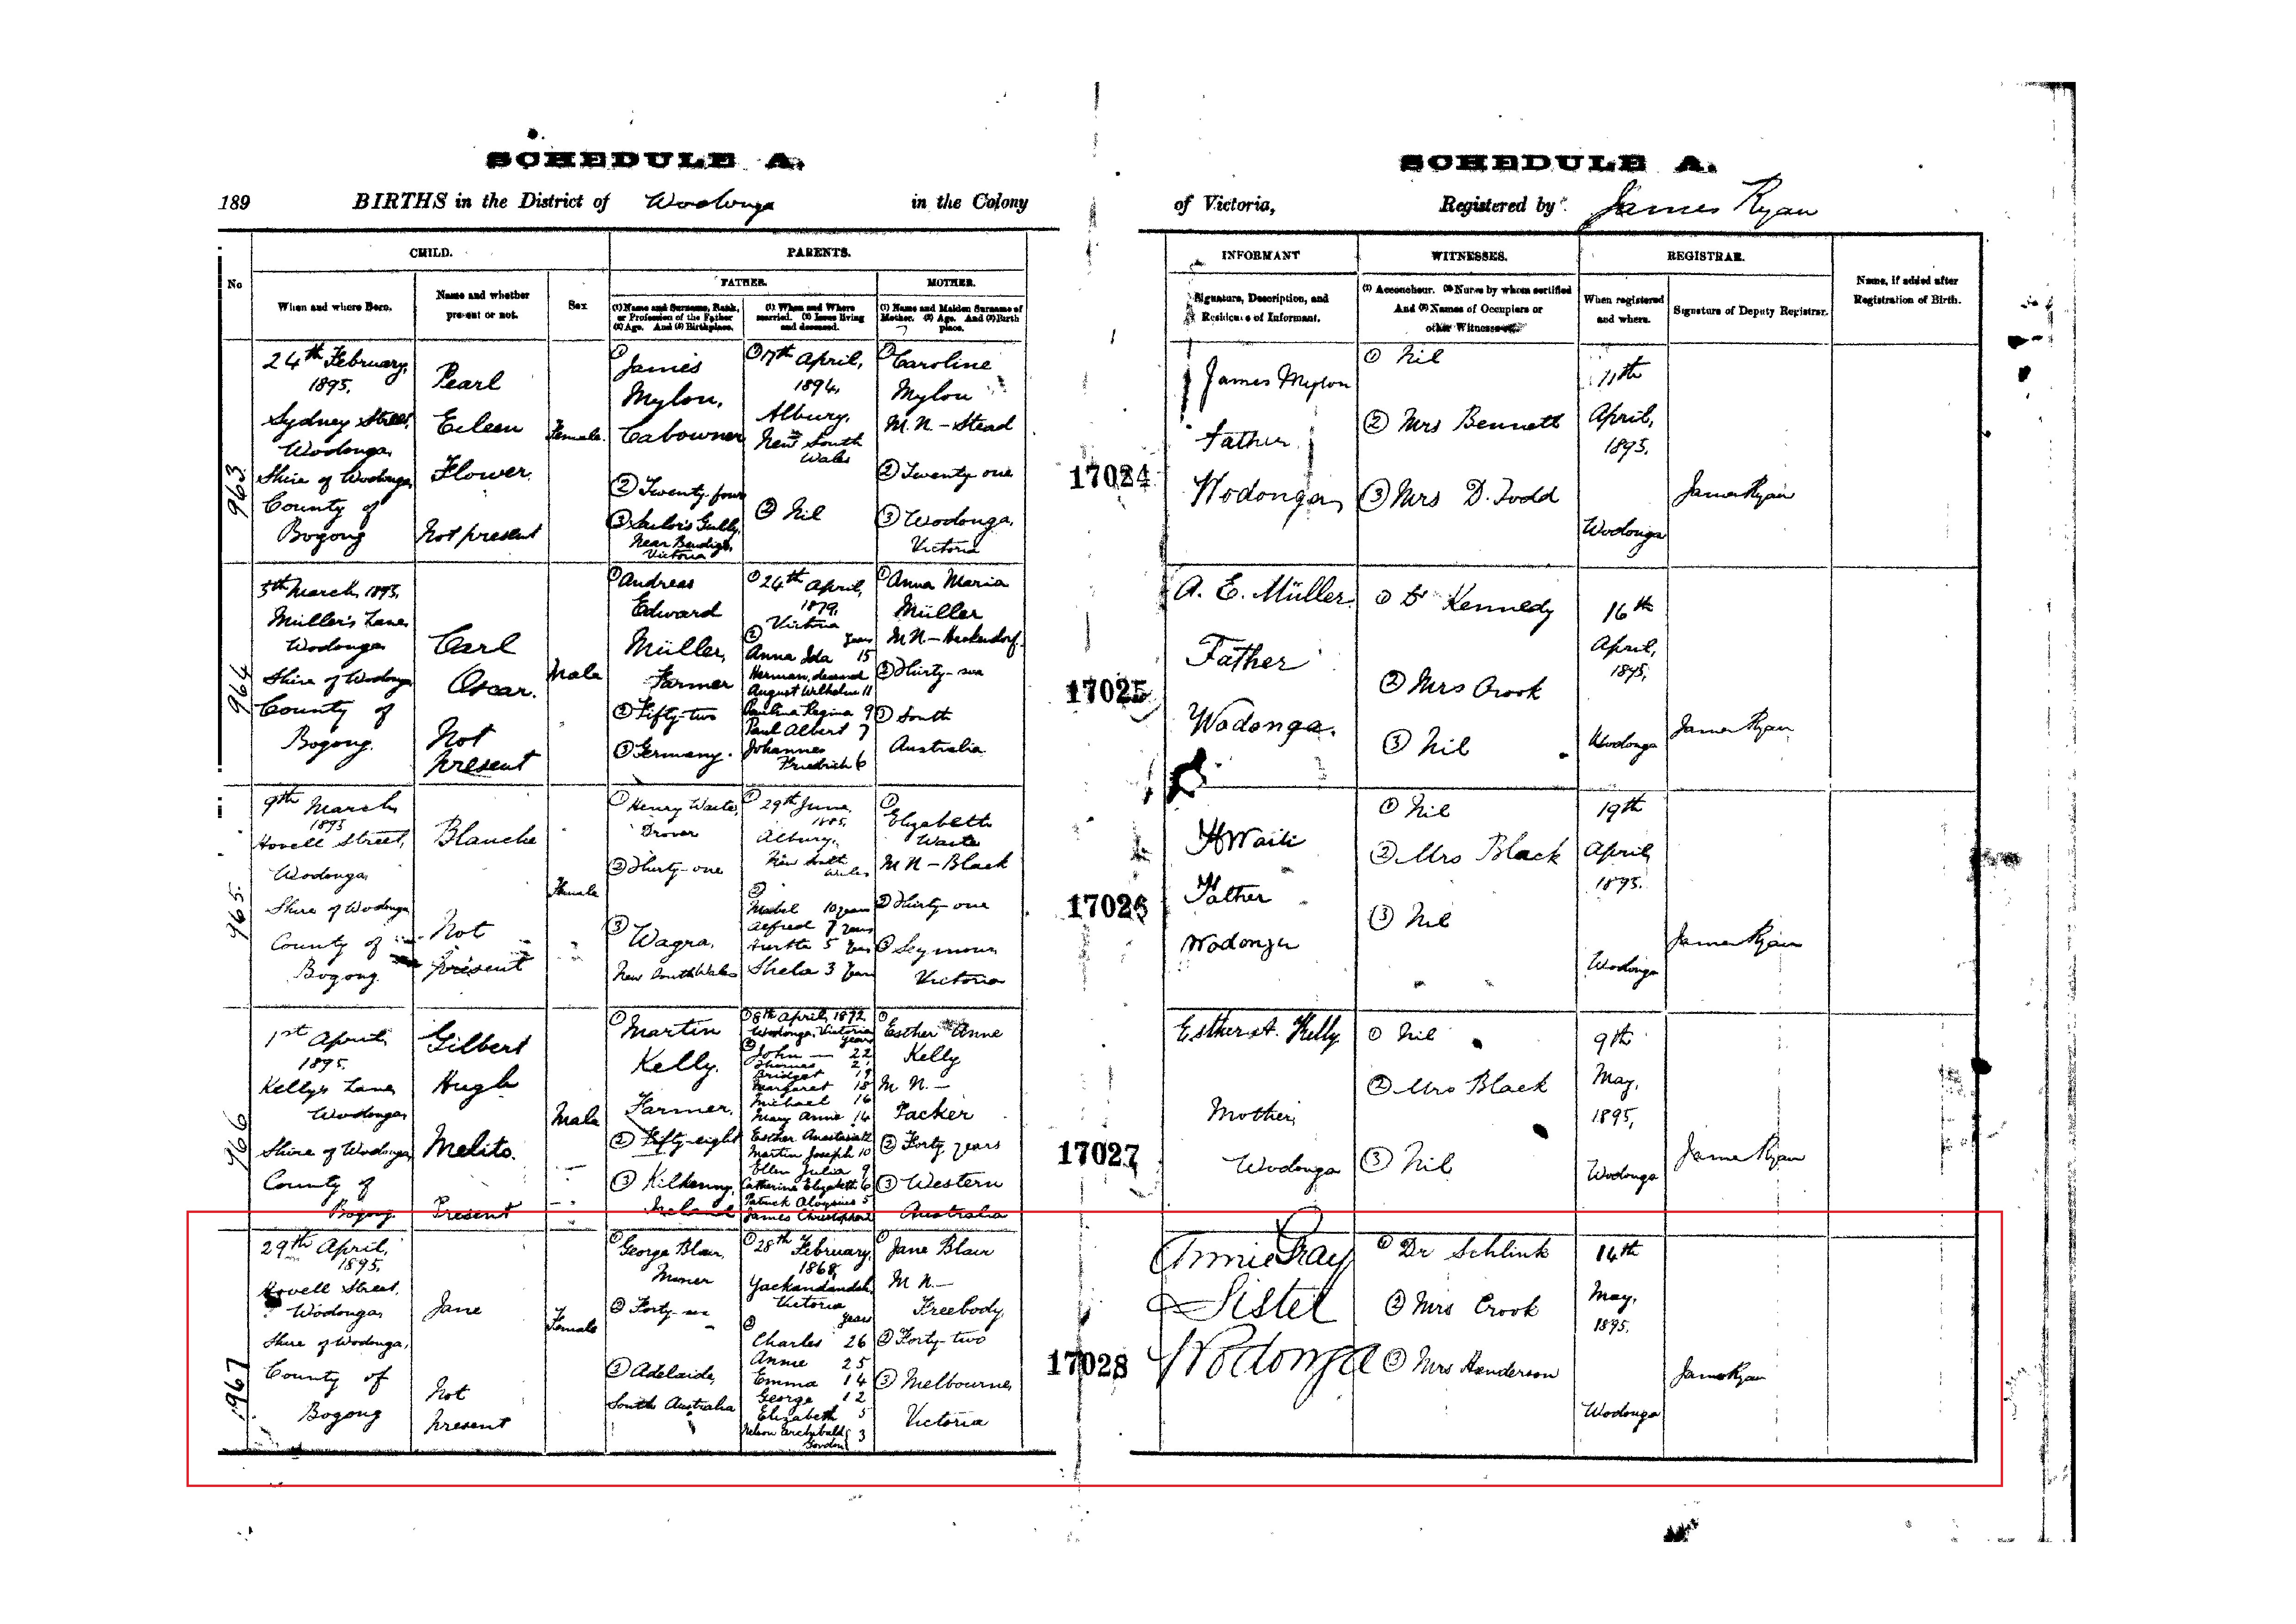 SCHEDULE A.
189 BIRTHS in the District of Wodonga in the Colony
No
CHILD.
When and where Born.
Name and whether
present or not.
Sex
PARENTS.
FATHER.
(1) Name and Surname, Rank,
or Profession of the Father
(2) Age. And (3) Birthplace.
(1) When and Where
married. (2) Issue living
and deceased.
MOTHER.
(1) Name and Maiden Surname of
Mother. (2) Age. And (3) Birth
place.
963
24th February,
1895.
Sydney Street,
Wodonga,
Shire of Wodonga,
County of
Bogong
Pearl
Eileen
Flower.
Not present
Female.
① James
Mylon,
Cabowner
② Twenty four
③ Sailor's Gully,
Near Bendigo,
Victoria
① 17th April,
1894,
Albury,
New South
Wales
② Nil
① Caroline
Mylon
M.N. - Stead
② Twenty one
③ Wodonga,
Victoria
964
5th March, 1895,
Müller's Lane
Wodonga
Shire of Wodonga
County of
Bogong.
Carl
Oscar.
Not
present
Male
① Andreas
Edward
Müller,
Farmer
② Fifty-two
③ Germany.
① 24th April,
1879,
Victoria
② years
Anna Ida 15
Herman, deceased
August Wilhelm 11
Paulina Regina 9
Paul Albert 7
Johannes
Friedrich 6
① Anna Maria
Müller
M N -
② Thirty-
③ South
Australia
965.
9th March
1895
Hovell Street,
Wodonga
Shire of Wodonga
County of
Bogong
Blanche
Not
present
Female
① Henry Waite,
Drover
② Thirty-one
③ Wagra,
New South Wales
① 29th June,
1885,
Albury,
New South
Wales
②
Mabel 10 years
Alfred 7 years
5 years
3 years
① Elizabeth
Waite
M N - Black
② Thirty-one
③ Seymour
Victoria
966
1st April,
1895.
Kelly's Lane
Wodonga
Shire of Wodonga,
County of
Bogong.
Gilbert
Hugh
Melito.
Present
Male
① Martin
Kelly.
Farmer,
② Fifty-eight
③ Kilkenny,
Ireland
① 8th April, 1872
Wodonga, Victoria
② years
John — 22
Thomas 21
Bridget 19
Margaret 18
Michael 16
Mary Anne 14
Esther Anastasia
Martin Joseph 10
Ellen Julia 9
Catherine Elizabeth 6
Patrick Aloysius 5
James Christopher
① Esther Anne
Kelly
M. N. -
Packer
② Forty years
③ Western
Australia
967
29th April,
1895.
Hovell Street,
Wodonga,
Shire of Wodonga,
County of
Bogong
Jane
Not
present
Female
① George Blair,
Miner
② Forty-
③ Adelaide,
South Australia
① 28th February,
1868,
Yackandandah,
Victoria
② years
Charles 26
Annie 25
Emma 14
George 12
Elizabeth 5
Nelson Archibald
Gordon } 3
① Jane Blair
M N. -
Freebody
② Forty-two
③ Melbourne,
Victoria
SCHEDULE A.
of Victoria, Registered by James Ryan
INFORMANT
Signature, Description, and
Residence of Informant.
WITNESSES.
(1) Accoucheur. (2) Nurse by whom certified
And (3) Names of Occupiers or
other Witnesses
REGISTRAR.
When registered
and where.
Signature of Deputy Registrar.
Name, if added after
Registration of Birth.
17024
James Mylon
Father
Wodonga
① Nil
② Mrs Bennett
③ Mrs D. Todd
11th
April,
1895,
Wodonga
James Ryan
17025
A. E. Müller.
Father
Wodonga.
① Dr Kennedy
② Mrs Crook
③ Nil
16th
April,
1895,
Wodonga
James Ryan
17026
H Waite
Father
Wodonga
① Nil
② Mrs Black
③ Nil
19th
April,
1895.
Wodonga
James Ryan
17027
Esther A. Kelly
Mother,
Wodonga
① Nil
② Mrs Black
③ Nil
9th
May,
1895,
Wodonga
James Ryan
17028
Annie Gray
Sister
Wodonga
① Dr Schlink
② Mrs Crook
③ Mrs Henderson
14th
May,
1895.
Wodonga
James Ryan